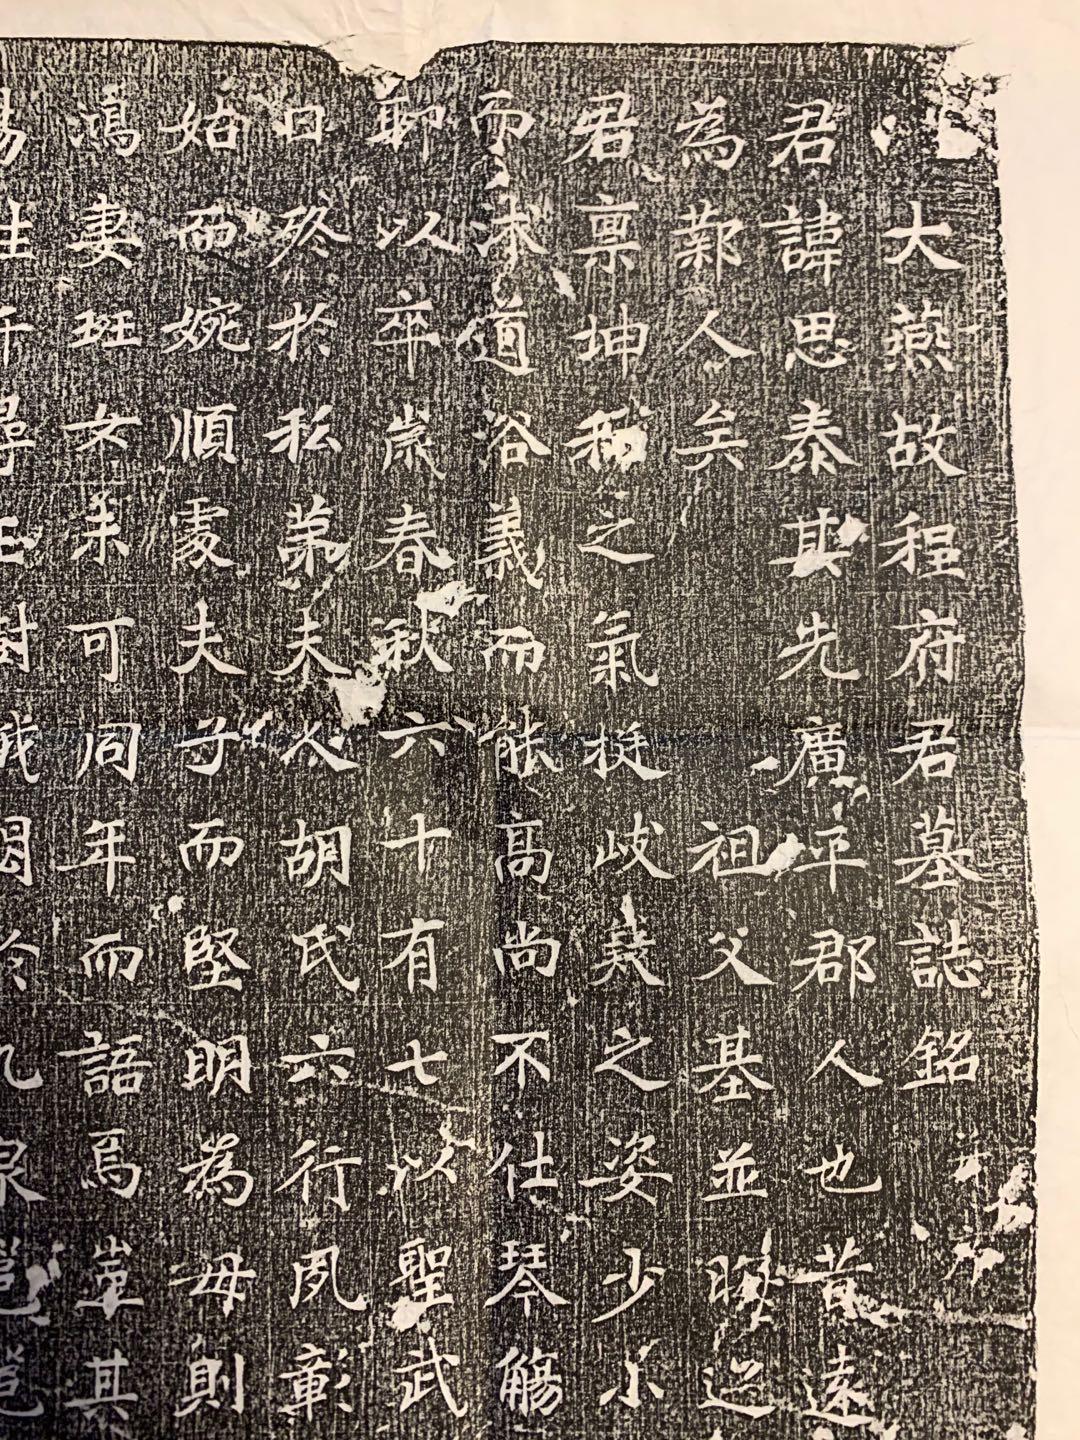 大燕故程府君墓誌銘
君諱思泰其先廣平郡人也昔遠
為鄴人矣祖父基並
君禀坤之氣挺岐嶷之姿少小
而沐道浴義而能高尚不仕琴觴
聊以卒歲春秋六十有七以聖武
日終於私第夫人胡氏六行夙彰
始而婉順處夫子而堅明為母則
鴻妻班女未可同年而語焉嵩其